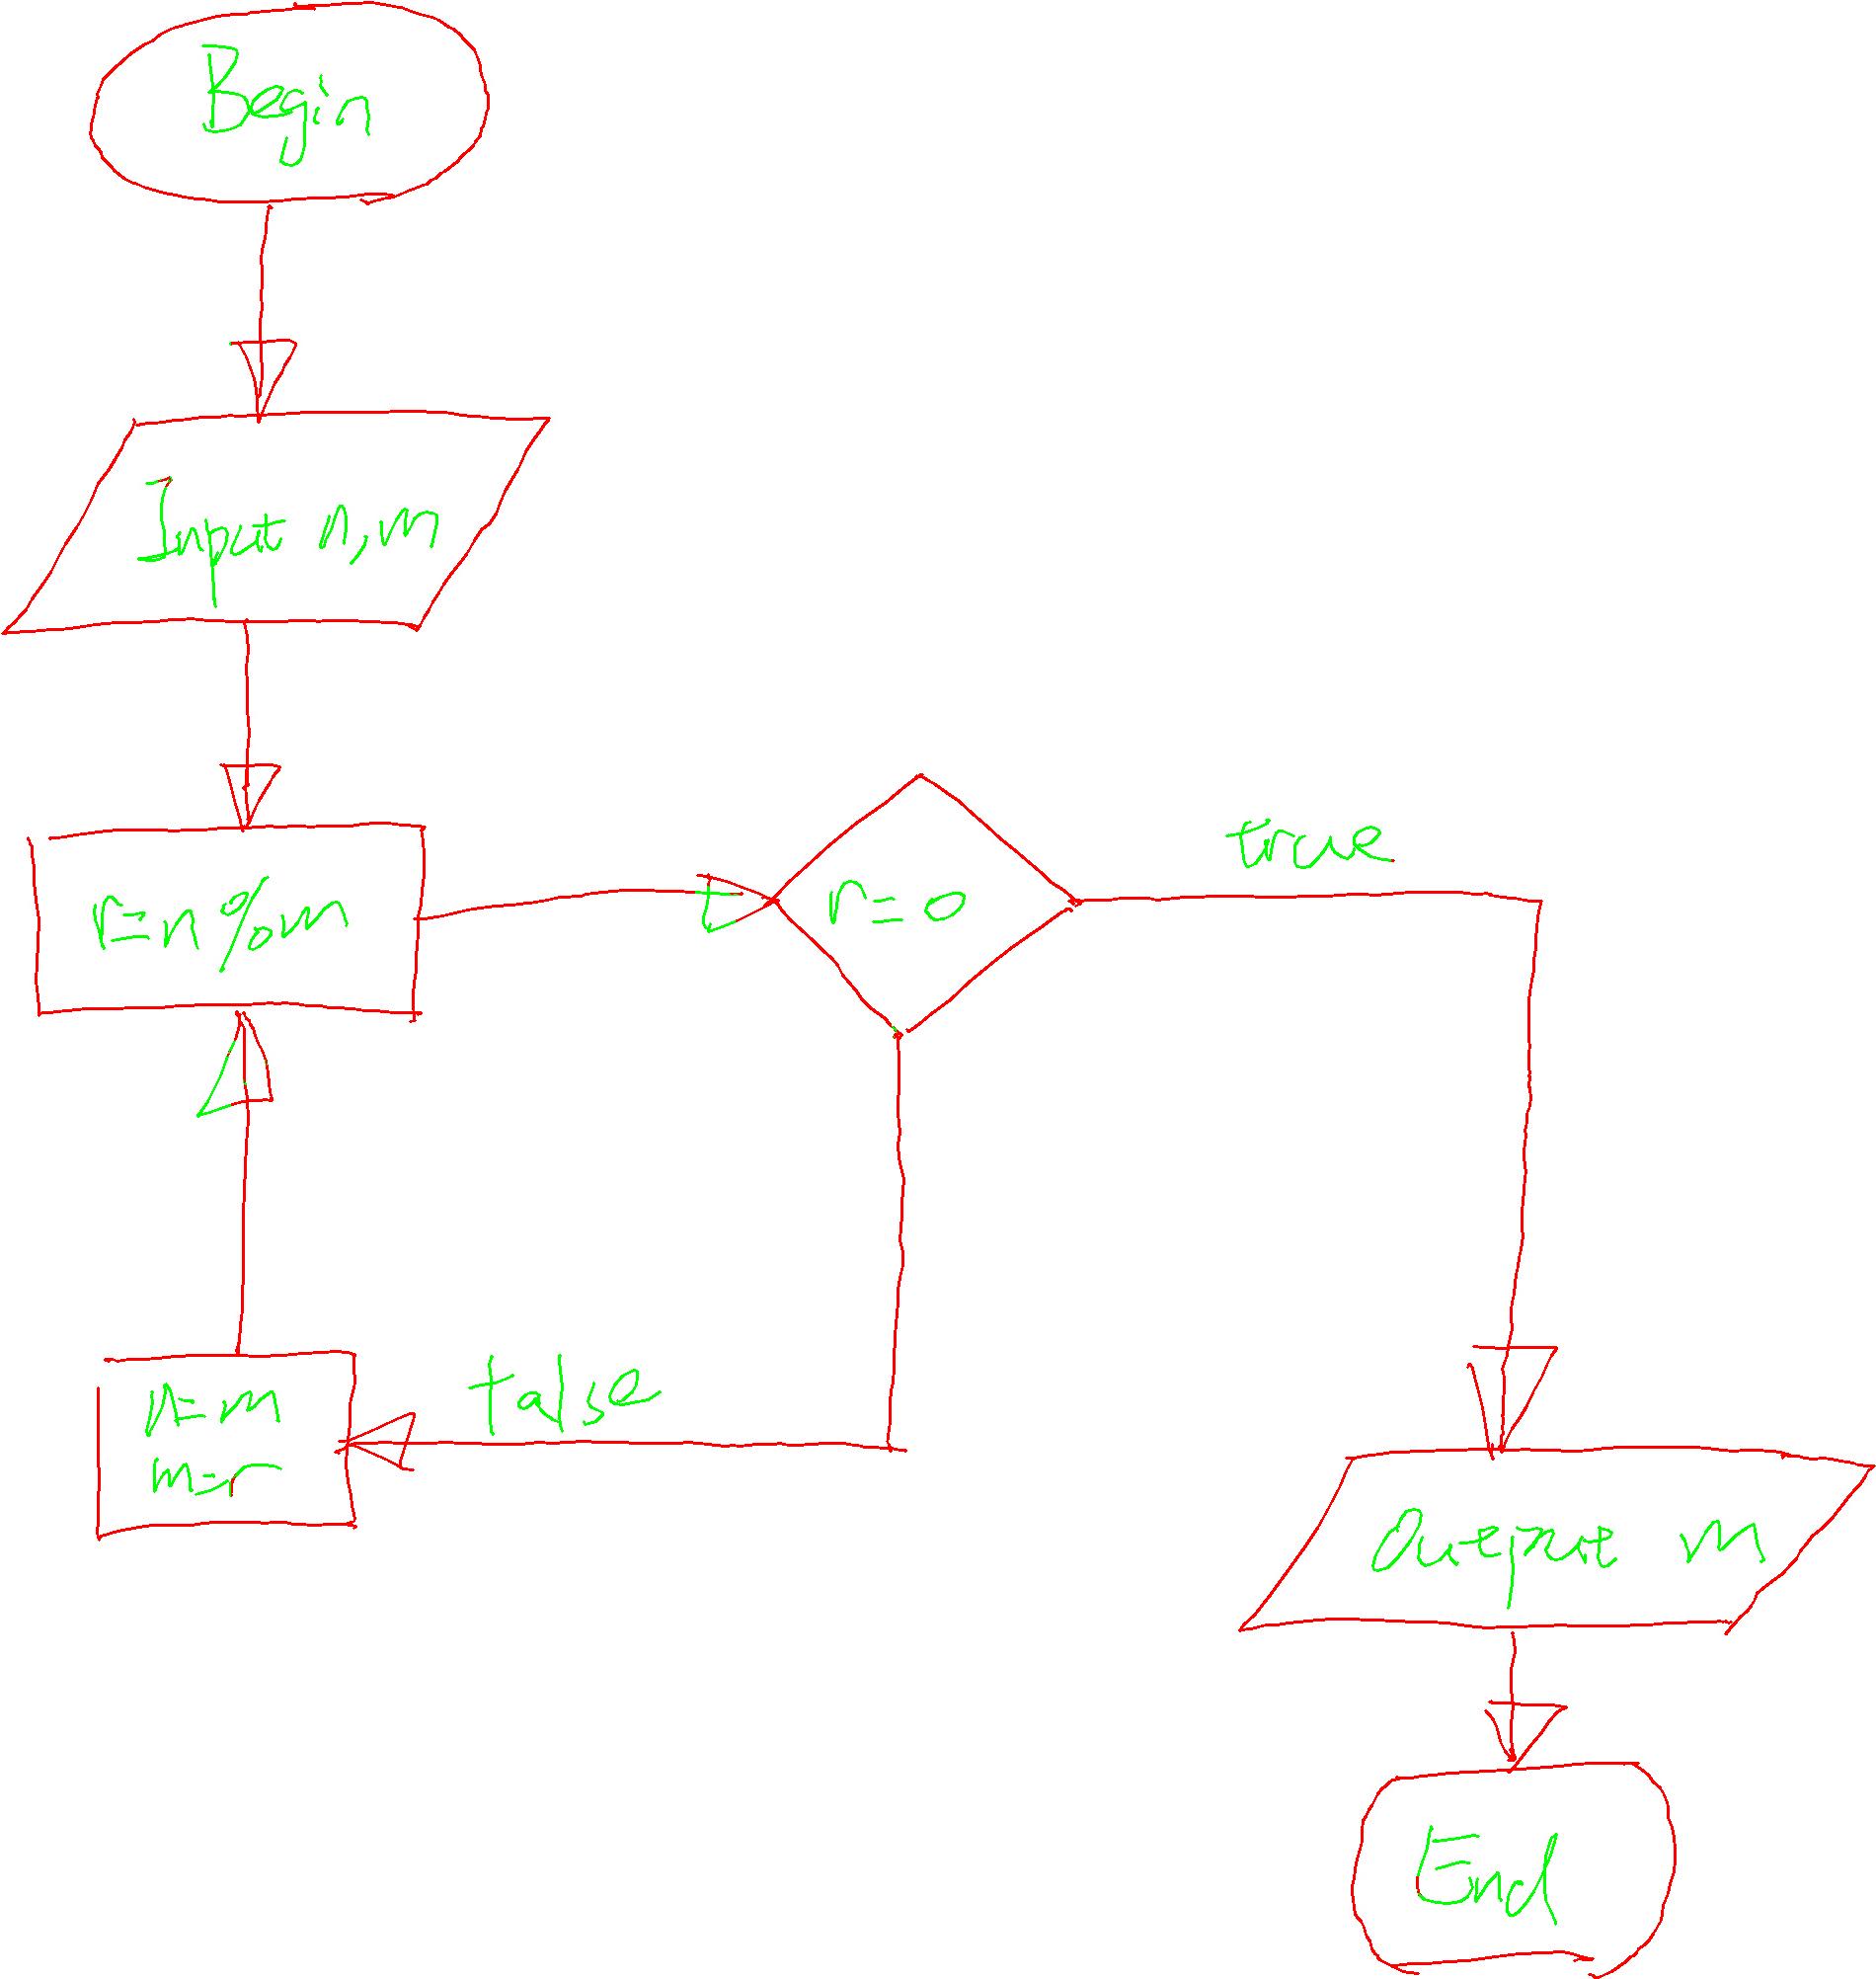 Begin
Input n, m
r=n%m
r=0
true
false
n=m
m=r
Output m
End